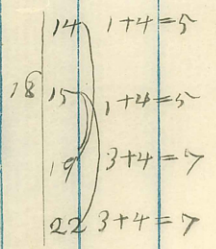 14 1+4=5
18 15 1+4=5
19 3+4=7
22 3+4=7